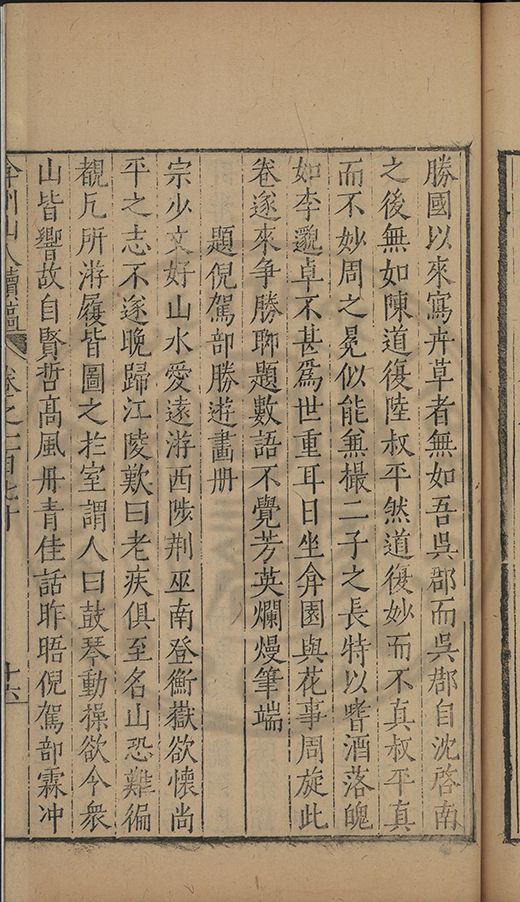 勝國以來寫卉草者無如吾吳郡而吳郡自沈啓南
之後無如陳道復陸叔平然道復妙而不真叔平真
而不妙周之冕似能兼撮二子之長特以嗜酒落魄
如李邈卓不甚爲世重耳日坐弇園與花事周旋此
卷遂來争勝聊題數語不覺芳英爛熳筆端
題倪駕部勝遊畫册
宗少文好山水愛遠游西陟荆巫南登衡嶽欲懷尚
平之志不遂晚歸江陵歎曰老疾俱至名山恐難徧
覩凡所游履皆圖之於室謂人曰鼓琴動操欲令衆
山皆響故自賢哲髙風丹青佳話昨晤倪駕部霖冲
弇州山人續藳 卷之一百七十 十六